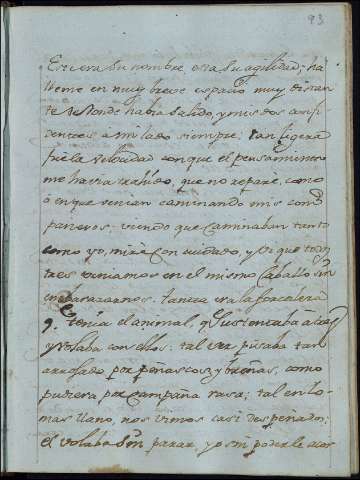 93
Ese era su nombre, o ra su agilidad; ha
lleme en muy breve espacio muy distan
te de donde havia salido, y mis dos confi
dentes a mi lado siempre; tan ligera
fue la velocidad con que el pensamiento
me havia trahido, que no reparè, como
ò en que venian caminando mis com
pañeros; viendo que caminaban tanto
como yo, mirè con cuidado, y vi que todos
tres veniamos en el mismo caballo sin
embarazarnos: tanta era la fortaleza
q. tenia el animal, q. sustentaba a tres
y volaba con ellos: tal vez pisaba tan
arrojado por peñascos, y breñas, como
pudiera por campaña rasa; tal en lo
mas llano, nos vimos casi despeñados;
el volaba sin parar, y yo sin poderle